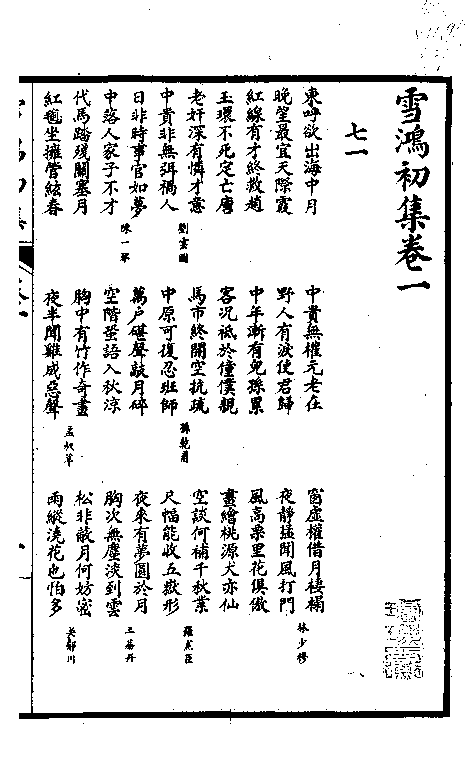 雪鴻初集卷一
七一
東呼欲出海中月
晚望最宜天際霞
紅線有才終救趙
玉環不死定亡唐
老奸深有憐才意
中貴非無弭禍人
劉雲圖
日非時事官如夢
中落人家子不才
陳一翠
代馬踏殘關塞月
紅氍坐擁管絃春
中貴無權元老在
野人有淚使君歸
中年漸有兒孫累
客況祇於僮僕親
馬市終開空抗疏
中原可復忍班師
萬戶碪聲敲月碎
空階蛩語入秋涼
胸中有竹作奇畫
夜半聞雞感惡聲
窗虛權借月棲補
夜靜猛聞風打門
林少穆
風高栗里花俱傲
畫繪桃源犬亦仙
空談何補千秋業
尺幅能收五嶽形
夜來有夢圓於月
胸次無塵淡到雲
松非蔽月何妨密
雨縱澆花也怕多